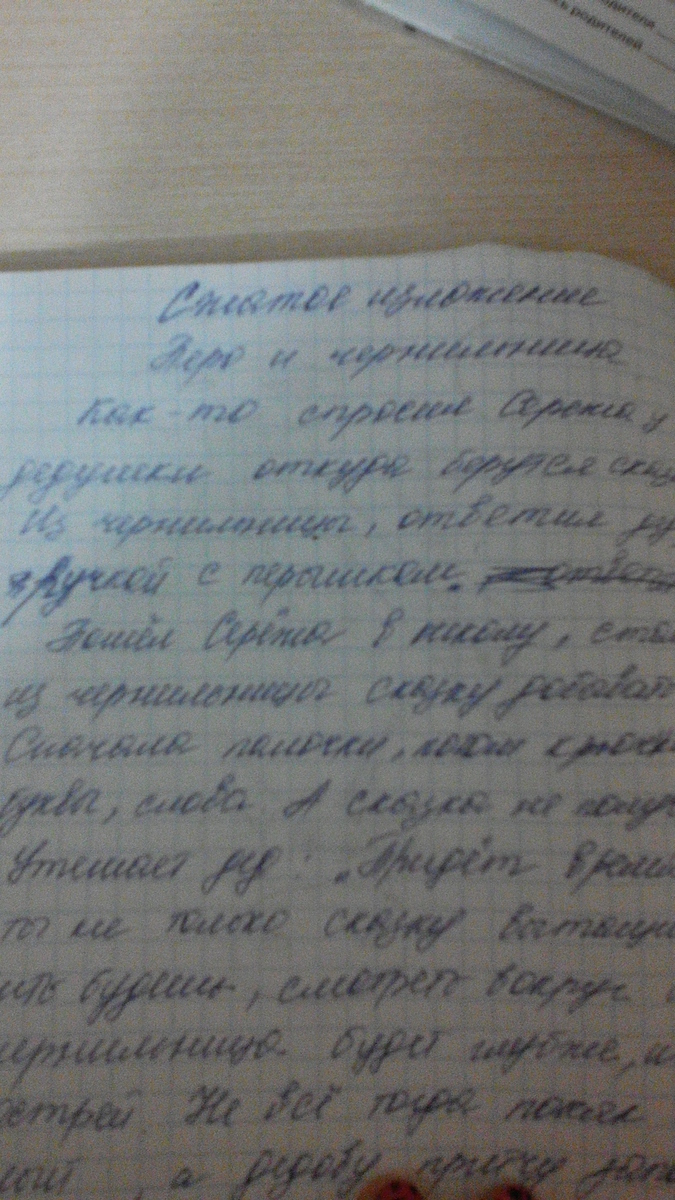 родителя
сь родителей
Сжатое изложение
Перо и чернильница
Как-то спросил Сережа у
дедушки откуда берутся сказ
Из чернильницы, ответил де
ручкой с перышком.
Пошёл Серёжа в школу, стал
из чернильницы сказку добывать
Сначала палочки, потом крючки
буквы, слова. А сказка не получ
Утешает дед: „Придёт время
ты не только сказку вытащи
ить будешь, смотреть вокруг
чернильница будет глубже, и
острей. Не всё тогда понял
ый, а дедову притчу запо